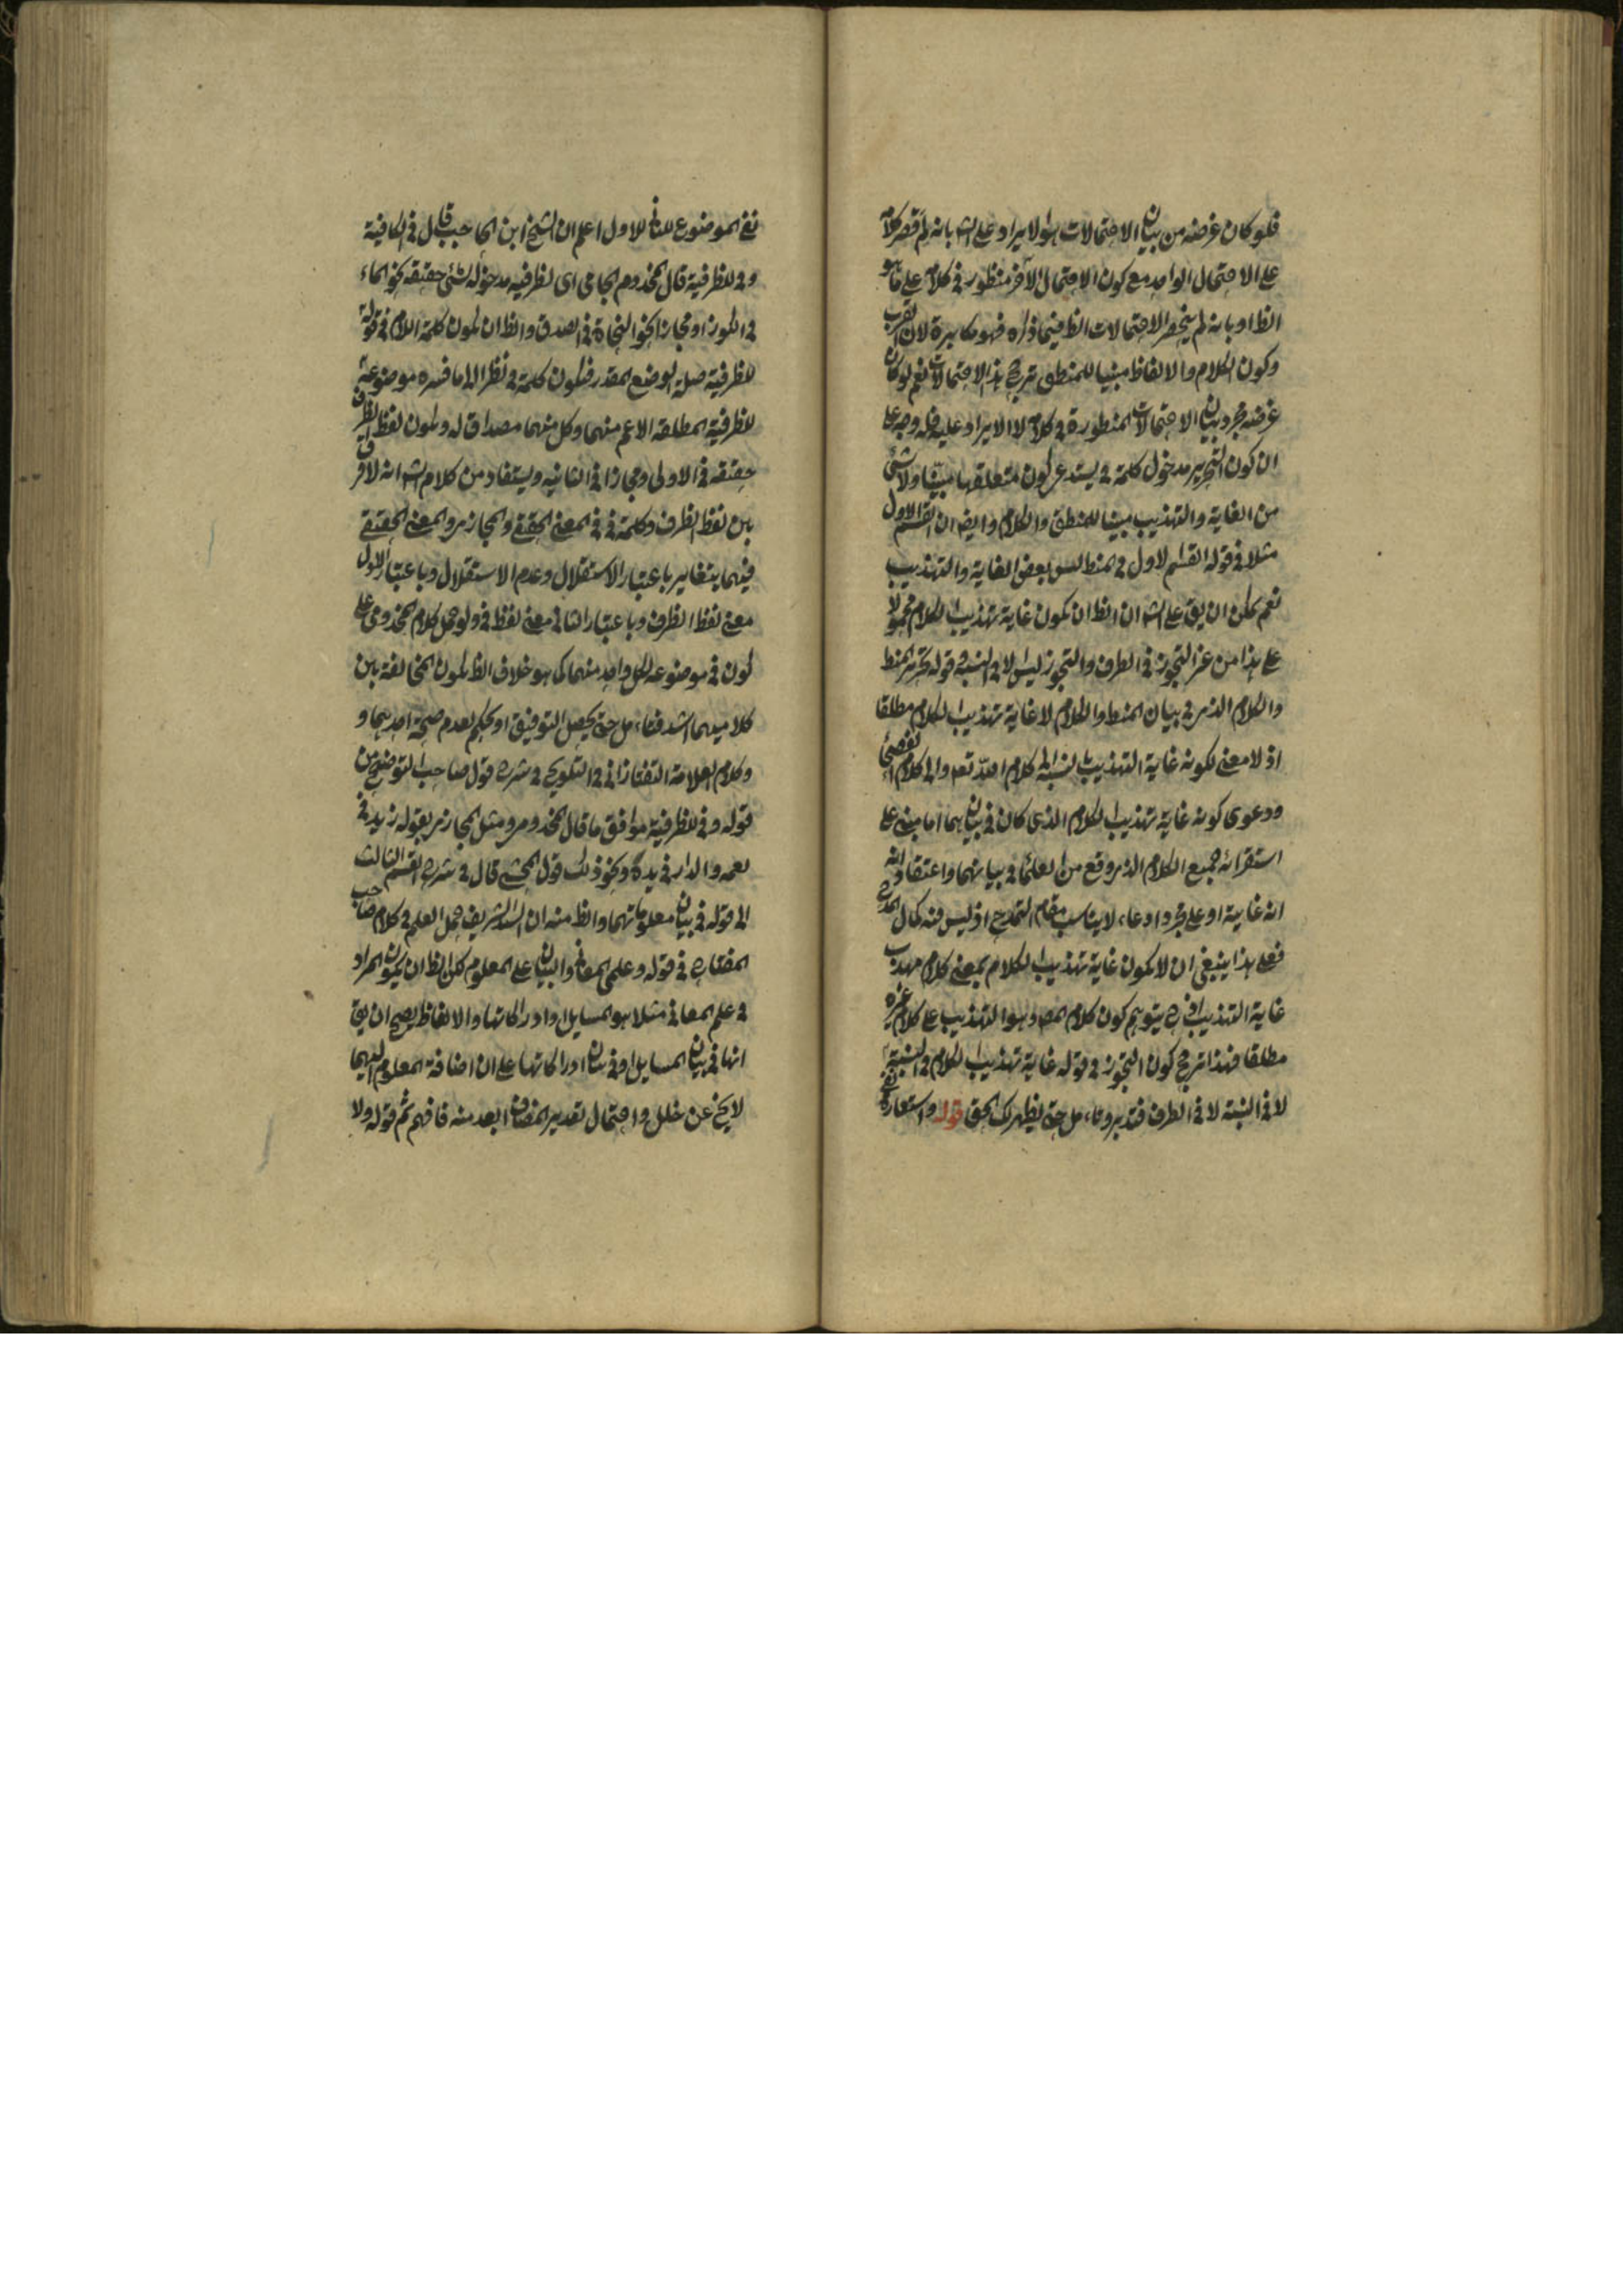 فلو كان غرضه من بيان الاحتمالات هو الايراد على الشه بانه لم قصر كلامه
على الاحتمال الواحد مع كون الاحتمال الآخر منظور في كلام على ما هو
الظ او بانه لم ينحصر الاحتمالات الظ فيما ذكره فهو مكابرة لان القرب
وكون الكلام والالفاظ مبنيا للمنطق ترجح هذا الاحتمالات نعم لو كان
غرضه مجرد بيان الاحتمالات المنظورة في كلام لا الايراد عليه فله وجه على
ان كون التحرير مدخول كلمة في يستدعي كون متعلقها مبينا ولا شئ
من الغاية والتهذيب مبينا للمنطق والكلام وايضا ان القسم الاول
مثلا في قوله القسم الاول في المنطق ليس بعض الغاية والتهذيب
نعم يمكن ان يق على الشه ان الظ ان يكون غاية تهذيب الكلام محمولا
على هذا من غير التجوز في الطرف والتجوز ليس الا في النسبة في قوله تحرير المنطق
والكلام الذي في بيان المنطق والكلام لا غاية تهذيب الكلام مطلقا
اذ لا معنى لكونه غاية التهذيب بالنسبة الى كلام الله تعه والى كلام الفصحاء
ودعوى كونه غاية تهذيب الكلام الذي كان في بيانهما اما مبني على
استقرائه جميع الكلام الذي وقع من العلماء في بيانهما واعتقاد انه
انه غايية او على مجرد ادعاء، لا يناسب مقام التمدح اذ ليس فيه كمال المدح
فعلى هذا ينبغي ان لا يكون غاية تهذيب الكلام بمعنى كلام مهذب
غاية التهذيب اذ ح يتوهم كون كلام المص وهو التهذيب على كلام غيره
مطلقا فهذا ترجح كون التجوز في قوله غاية تهذيب الكلام في النسبة
لا في النسبة لا في الطرف فتدبر وتامل حتى يظهر لك الحق قوله واستعارة
نفي الموضوع للثاني للاول اعلم ان الشيخ ابن الحاجب قال في الكافية
وفي للظرفية قال المخدوم الجامي اى لظرفية مدخوله لشئ حقيقة نحو الماء
في الكوز او مجازا نحو النجاة في الصدق والظ ان يكون كلمة اللام في قوله
للظرفية صلة الوضع المقدر فيكون كلمة في نظرا الى ما فسره موضوعة
للظرفية المطلقة الاعم منهما وكل منهما مصداق له ويكون لفظ الظرف
حقيقة في الاولى ومجازا في الثانيه ويستفاد من كلام الشه انه لا فرق
بين لفظ الظرف وكلمة في في المعنى الحقيقي والمجازي والمعنى الحقيقي
فيهما يتغاير باعتبار الاستقلال وعدم الاستقلال وباعتبار الاول
معنى لفظ الظرف وباعتبار الثاني معنى لفظ في ولو حمل كلام المخدومي على
كون في موضوعه لكل واحد منهما كما هو خلاف الظ يكون المخالفة بين
كلاميهما اشد فتامل حتى يحصل التوفيق او يحكم بعدم صحة احدهما و
وكلام العلامة التفتازاني في التلويح في شرح قول صاحب التوضيح من
قوله وفي للظرفية موافق ما قال المخدومي ومثل المجازي بقوله زيد في
نعمه والدار في يده ونحو ذلك قول المحشي قال في شرح القسم الثالث
الى قوله في بيان معلوماتهما والظ منه ان السيد الشريف حمل العلم في كلام صاحب
المفتاح في قوله وعلمى المعاني والبيان على المعلوم لكن الظ ان يكون المراد
في علم المعاني مثلا هو المسايل وادراكاتها والالفاظ يصح ان يق
انها في بيان المسايل او في بيان ادراكاتها على ان اضافة المعلوم اليهما
لا يخ عن خلل واحتمال تقدير المضاف ابعد منه فافهم ثم قوله ولا